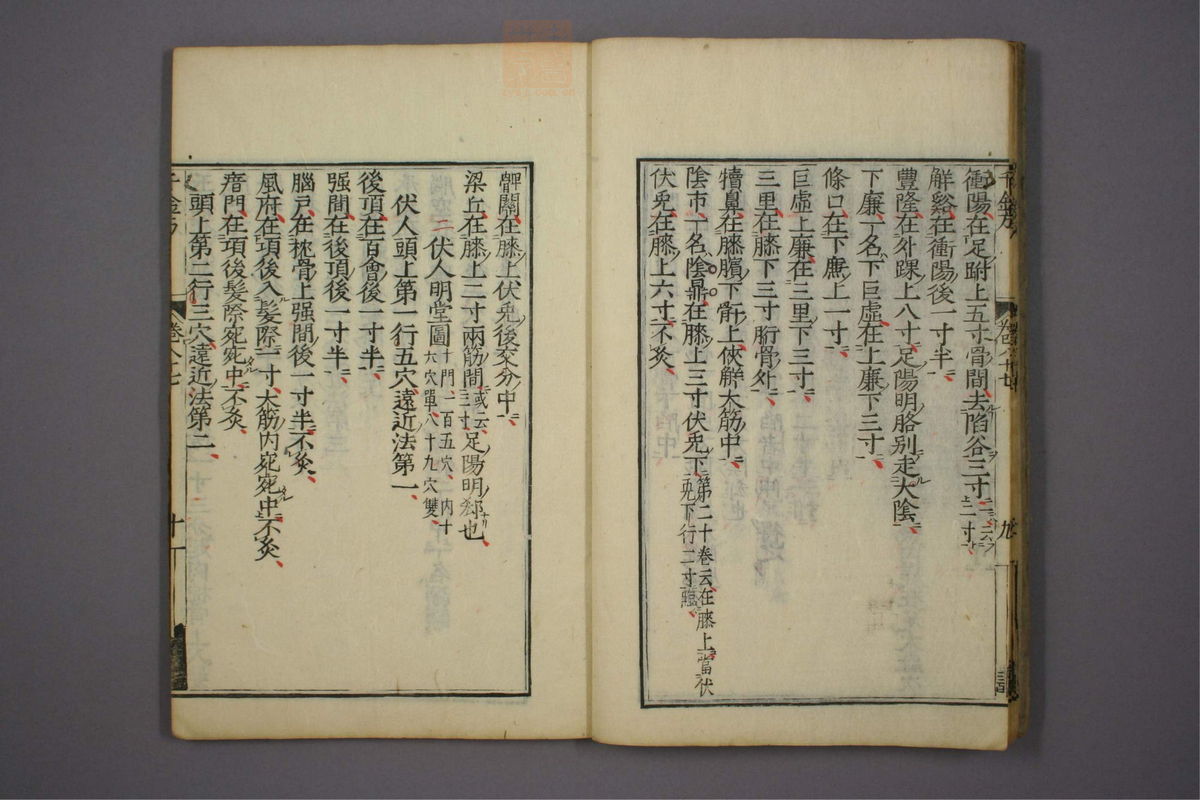 衝陽在足跗上五寸骨間去陷谷三寸一云二寸
解谿在衝陽後一寸半
豐隆在外踝上八寸足陽明胳別走太陰
下廉一名下巨虛在上廉下三寸
條口在下廉上一寸
巨虛上廉在三里下三寸
三里在膝下三寸胻骨外
犢鼻在膝臏下骭上俠解大筋中
陰市一名陰鼎在膝上三寸伏兎下第二十卷云在膝上當伏兎下行二寸臨
伏兎在膝上六寸不灸
髀關在膝上伏兎後交分中
梁丘在膝上二寸兩筋間或云三寸足陽明郄也
伏人明堂圖十門一百五穴内十六穴單八十九穴雙
伏人頭上第一行五穴遠近法第一
後頂在百會後一寸半
强間在後頂後一寸半
腦戶在枕骨上强間後一寸半不灸
風府在項後入髮際一寸大筋内宛宛中不灸
瘖門在項後髮際宛宛中不灸
頭上第二行三穴遠近法第二
千金方
卷八十七
九
千金方
卷八十七
十